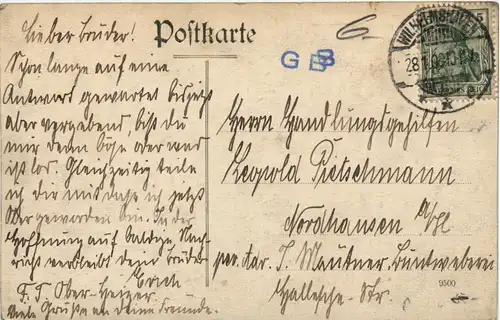 Lieber Bruder!
Schon lange auf eine
Antwort gewartet bis jetzt
aber vergebend, bist du
mir denn böse oder was
ist los. Gleichzeitig teile
ich dir mit dass ich jetzt
Ober geworden bin. In der
Hoffnung auf baldige Nach-
richt verbleibt dein Bruder
Erich
F. T. Ober-Heizer
Viele Grüße an deine Freunde.
Postkarte
G B B
6
WILHELMSHAVEN
28.1.
Herrn Handlungsgehilfen
Leopold Pietschmann
Nordhausen a/H
per. adr. J. Mautner Buntweberei
Hallesche-Str.
9500